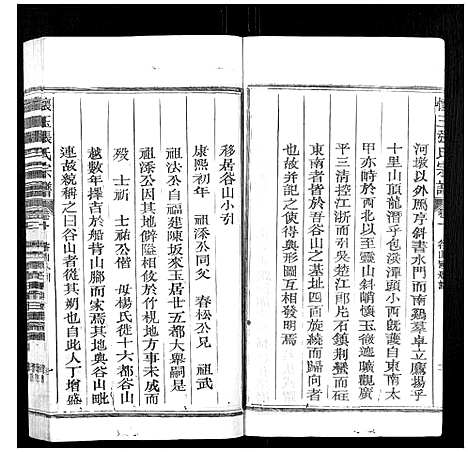 懷玉張氏宗譜
河墩以外馬亭斜書水門而南鷄羣卓立鷹揚乎
十里山頂龍潛乎包淡潭頭小西既護自東南太
甲亦峙於西北天盤山斜峭懷玉薇遮曠觀廣
平三清控江浙而引吳楚江郎片石鎮荆蠻而俯
東南者皆谷山之基址四圍旋繞而歸向者也
記之使得與形圖互相發明云
移居谷山小引
康熙初年 祖添公同父 春松公兄 祖武
祖法公自福建陳坂來玉居廿五都大舉嗣是
祖添公因其地僻隘移於竹梘地方事未成而
歿 士新 士祐公偕 母楊氏徙十六都谷山
越數年擇吉於船背山腳而家焉其地與谷山毗
連故統稱之曰谷山者從其朔也自此人丁增盛
懷玉張氏宗譜